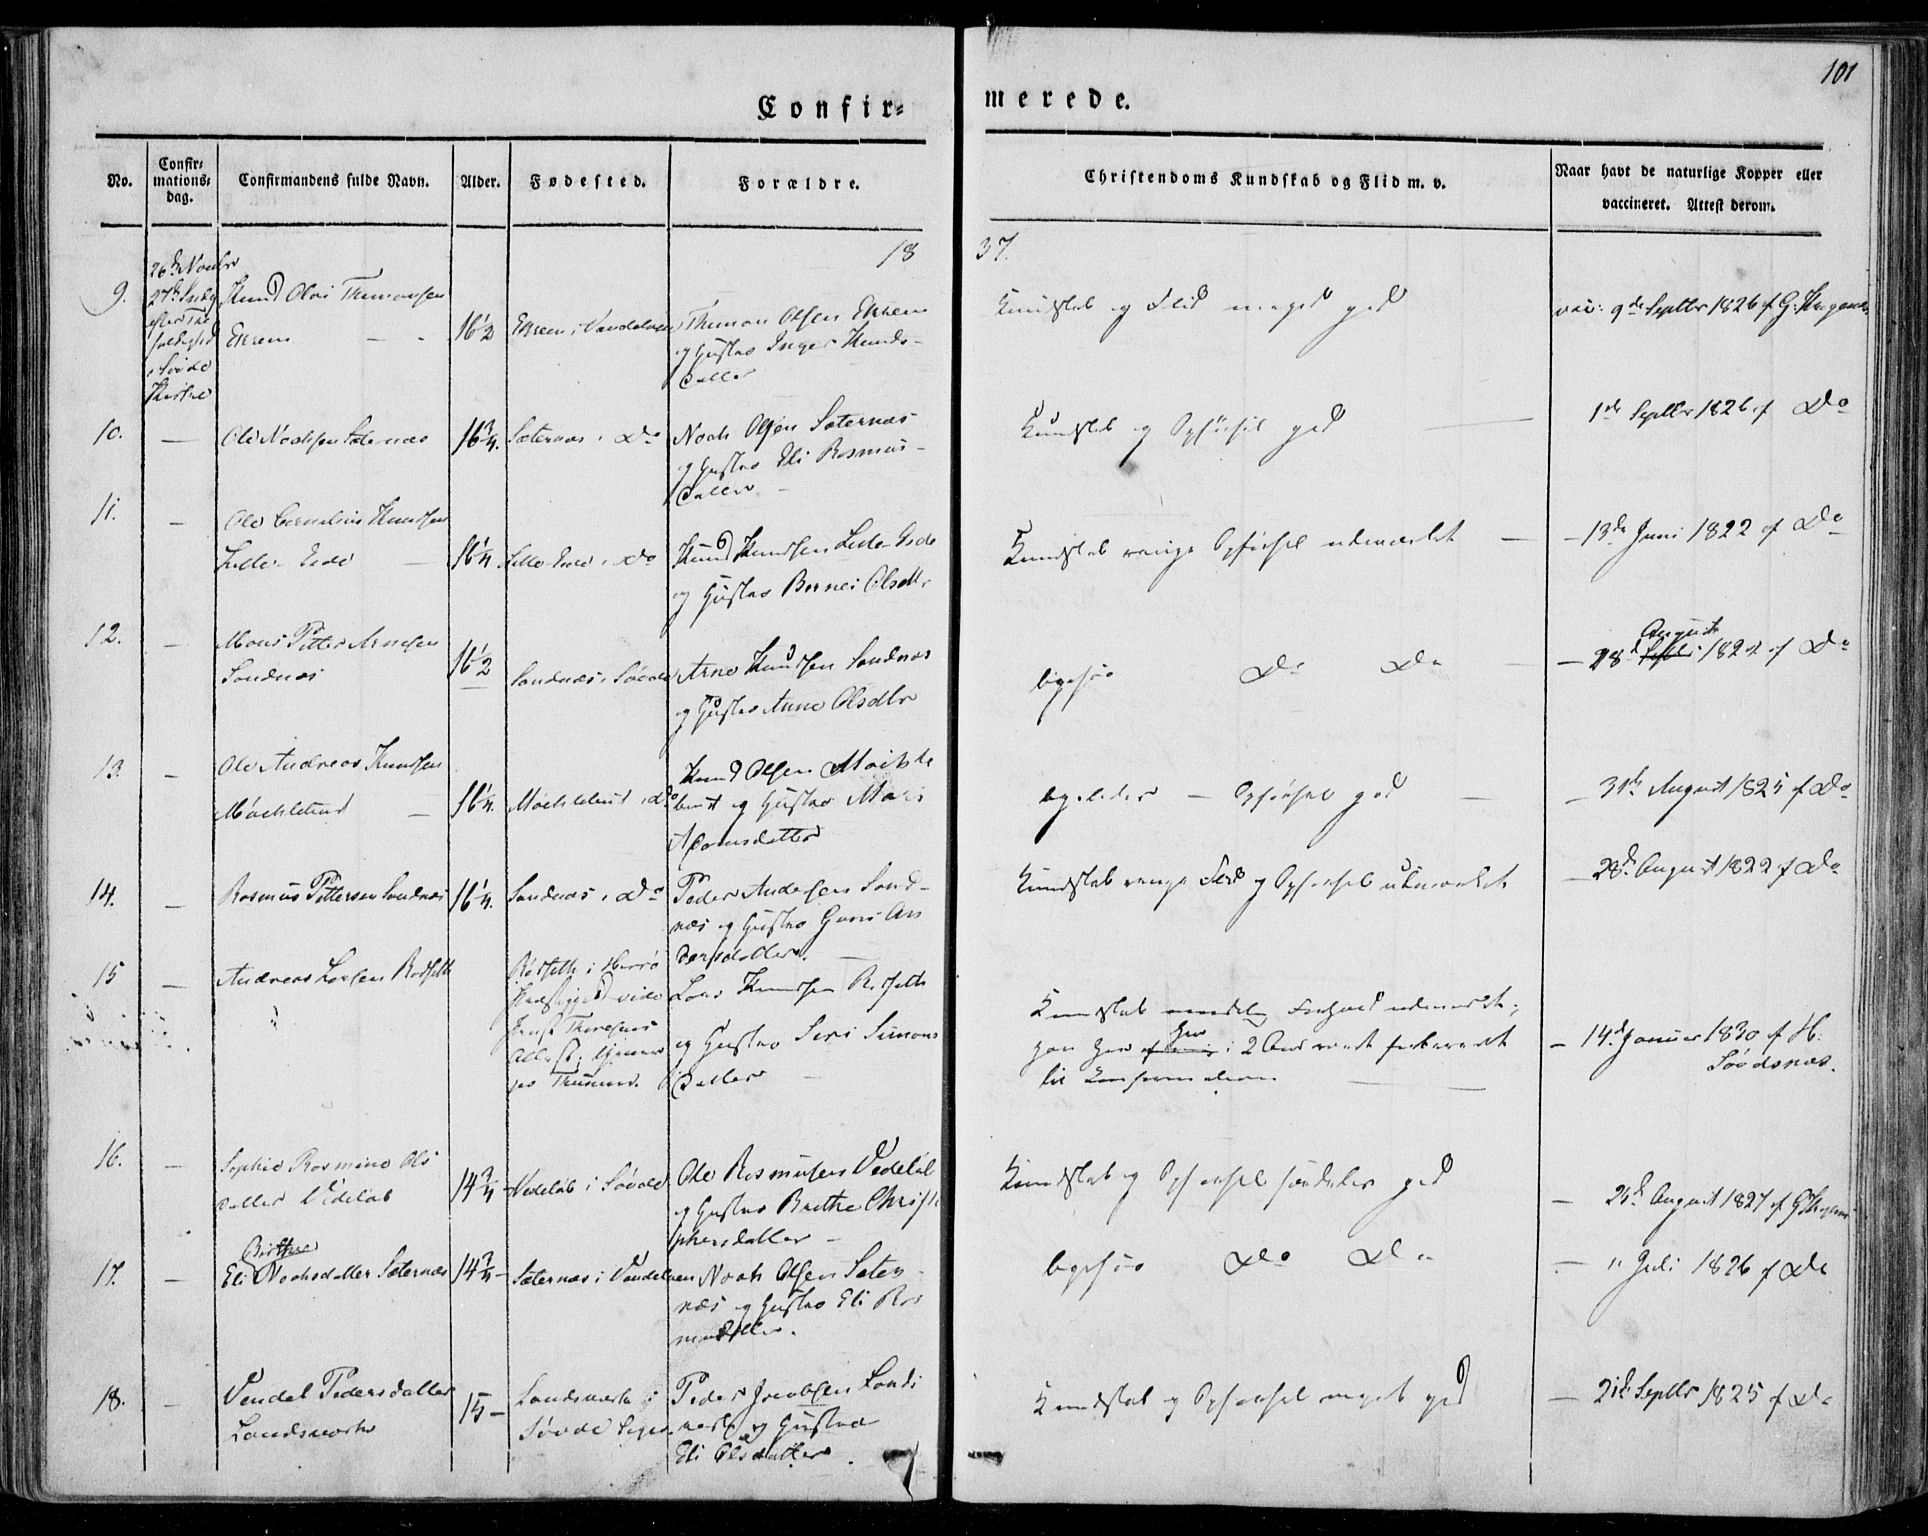 101
Confir-
merede.
No.
Confir-
mations-
dag.
Confirmandens fulde Navn.
Alder.
Fødested.
Forældre.
Christendoms Kundskab og Flid m. v.
Naar havt de naturlige Kopper eller
vaccineret. Attest derom.
18
37.
26de Novbr
27de
efter
9.
Knud Olai Thumansen
Ekrem
16½
Ekrem i Vandelven
Thuman Olsen Ekrem
og Hustro Inger Knuds-
datter
Kundskab og Flid meget god
vac: 9de Septbr 1826 af G.
10.
—
Ole Noahsen Sæternæs
16¾.
Sæternæs i Do
Noah Olsen Sæternæs
og Hustro Eli Rasmus-
datter
Kundskab og Opførsel god
1de Septbr 1826 af Do
11.
—
Ole Cornelius Knudsen
Lille-Eide
16¼.
Lille-Eide i Do
Knud Knudsen Lille-Eide
og Hustro Bernei Olsdtr
Kundskab ringe Opførsel udmærket
— 13de Juni 1822 af Do
12.
—
Mons Petter Arnesen
Sandnæs
16½
Sandnæs i Søvde
Arne Knudsen Sandnæs
og Hustro Anne Olsdtr
ligesaa Do Do
August
— 28d 1822 af Do
13.
—
Ole Andreas Knudsen
Møchlebust
16¼.
Møchlebust i Do
Knud Olsen Møckle
bust og Hustro Mari
datter
ligeledes — Opførsel god
— 31de August 1825 af Do
14.
—
Rasmus Pettersen Sandnæs
16¼.
Sandnæs i Do
Peder Andersen Sand-
næs og Hustro Guri An
dersdatter.
Kundskab ringe Flid og Opførsel udmærket
— 28d. August 1822 af Do
15
—
Andreas Larsen Rødseth
Rødseth i Herrø
Lars Knudsen Rødseth
og Hustro Siri Simons
datter
Kundskab Forhold udmærket;
han har i 2 Aar været forberedt
til Konfirmation
— 14d. Januar 1830 af H.
Søvdsnæs.
16.
—
Sophie Rasmine Ols
datter Vedelab
14¾
Vedelab i Søvde
Ole Rasmusen Vedelab
og Hustro Brethe Christo
phersdatter
Kundskab og Opførsel særdeles god
— 25d August 1827 af G
17.
—
Birthe
Eli Noahsdatter Sæternæs
14¾
Sæternæs i Vandelven
Noah Olsen Sæter-
næs og Hustro Eli Ras
musdatter.
ligesaa Do Do
— " Juli 1826 af Do
18.
—
Vendel Pedersdatter
Landsverk
15
Landsverk i
Søvde Sogn
Peder Jacobsen Lands
verk og Hustro
Eli Olsdatter.
Kundskab og Opførsel meget god
— 21d Septbr 1825 af Do